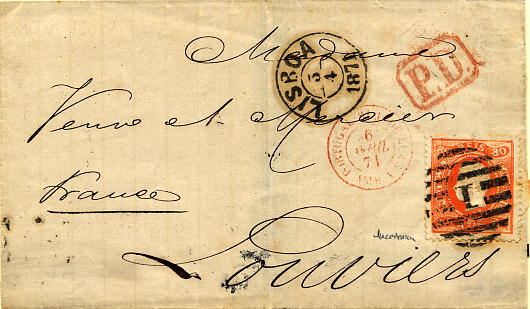 Madame
LISBOA
5
4
1871
P.D.
Veuve et Mercier
PORTUGAL
6
AVRIL
71
REIS 80
1
France
Louviers